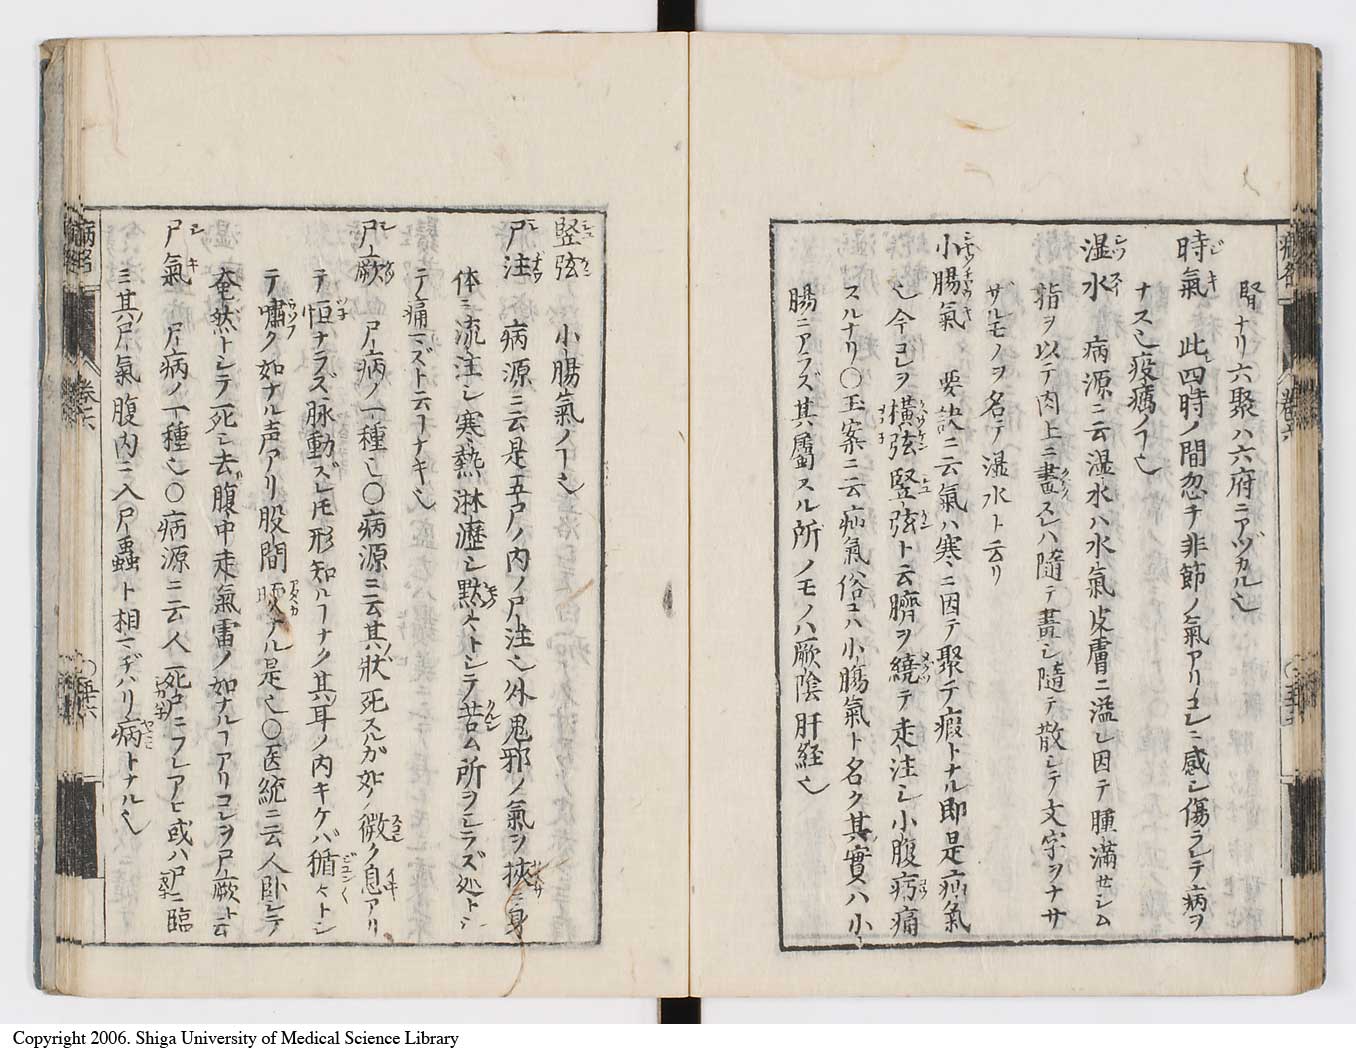 腎ナリ六聚ハ六府ニアヅカル也
時氣 此四時ノ間忽チ非節ノ氣アリコレニ感シ傷ラレテ病ヲ
ナス也疫癘ノ㆒也
湿水 病源ニ云湿水ハ水氣皮膚ニ溢レ因テ腫滿セシム
指ヲ以テ肉上ニ畫スレハ隨テ畫シ隨テ散シテ文字ヲナサ
ザルモノヲ名テ湿水ト云リ
小腸氣 要訣ニ云氣ハ寒ニ因テ聚テ瘕トナル即是疝氣
也今コレヲ横弦竪弦ト云臍ヲ繞テ走注シ小腹痛
スルナリ〇玉案ニ云疝氣俗ニハ小腸氣ト名ク其實ハ小
腸ニアラズ其屬スル所ノモノハ厥陰肝経也
竪弦 小腸氣ノ㆒也
尸注 病源ニ云是五尸ノ内ノ尸注也外鬼邪ノ氣ヲ挾ミ身
体ニ流注シ寒熱淋瀝シ黙々トシテ苦ム所ヲシラズ処トシ
テ痛マズト云㆒ナキ也
尸厥 尸病ノ一種也〇病源ニ云其状死スルガ如ク微ク息アリ
テ恒ナラズ脉動ズレ𪜈形知ル㆒ナク其耳ノ内キケバ循々トシ
テ嘯ク如ナル声アリ股間暖ナル是也〇医統ニ云人卧シテ
奄然トシテ死シ去腹中走氣雷ノ如ナル㆒アリコレヲ尸厥ト云
尸氣 尸病ノ一種也〇病源ニ云人死尸ニフレアヒ或ハ尸ニ臨
ミ其尸氣腹内ニ入尸蟲ト相マヂハリ病トナル也
病名
巻六
〇五十六
Copyright 2006. Shiga University of Medical Science Library